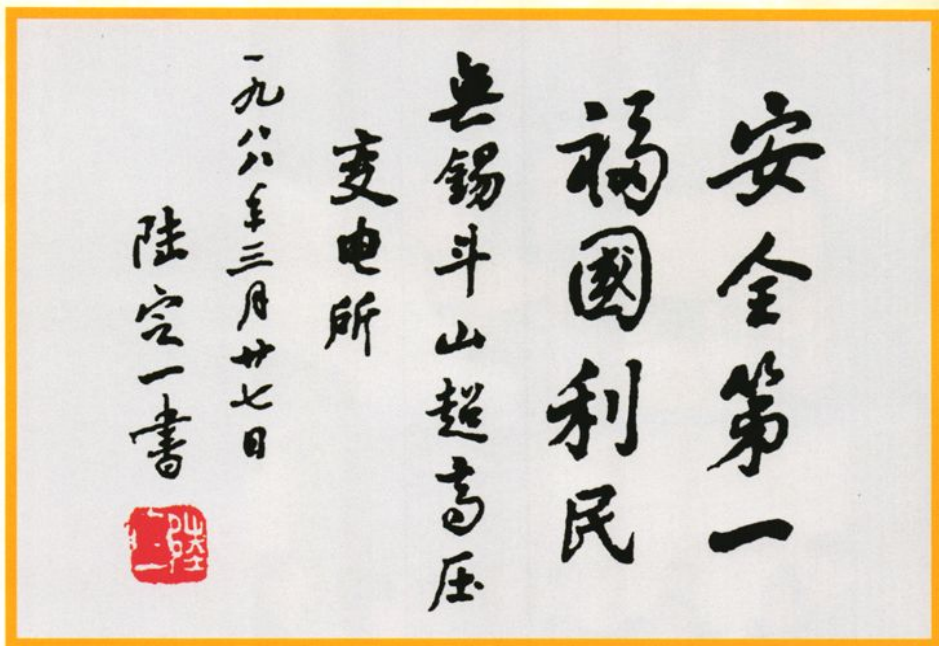 安全第一
福國利民
無錫斗山超高压
变电所
一九八八年三月廿七日
陆定一書